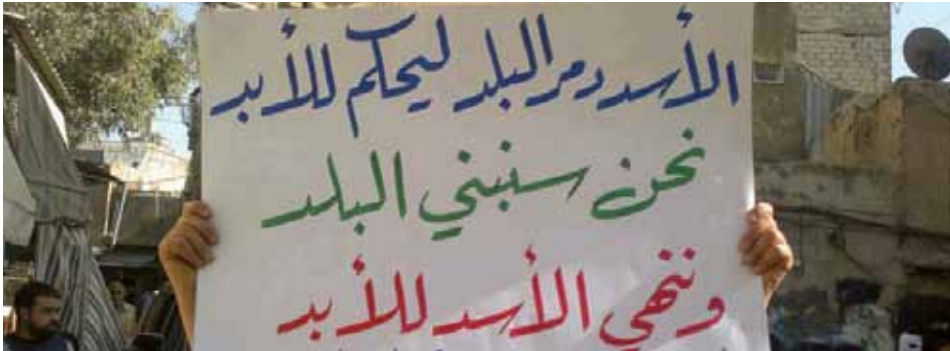 الأسد دمر البلد ليحكم للأبد
نحن سنبني البلد
وننهي الأسد للأبد